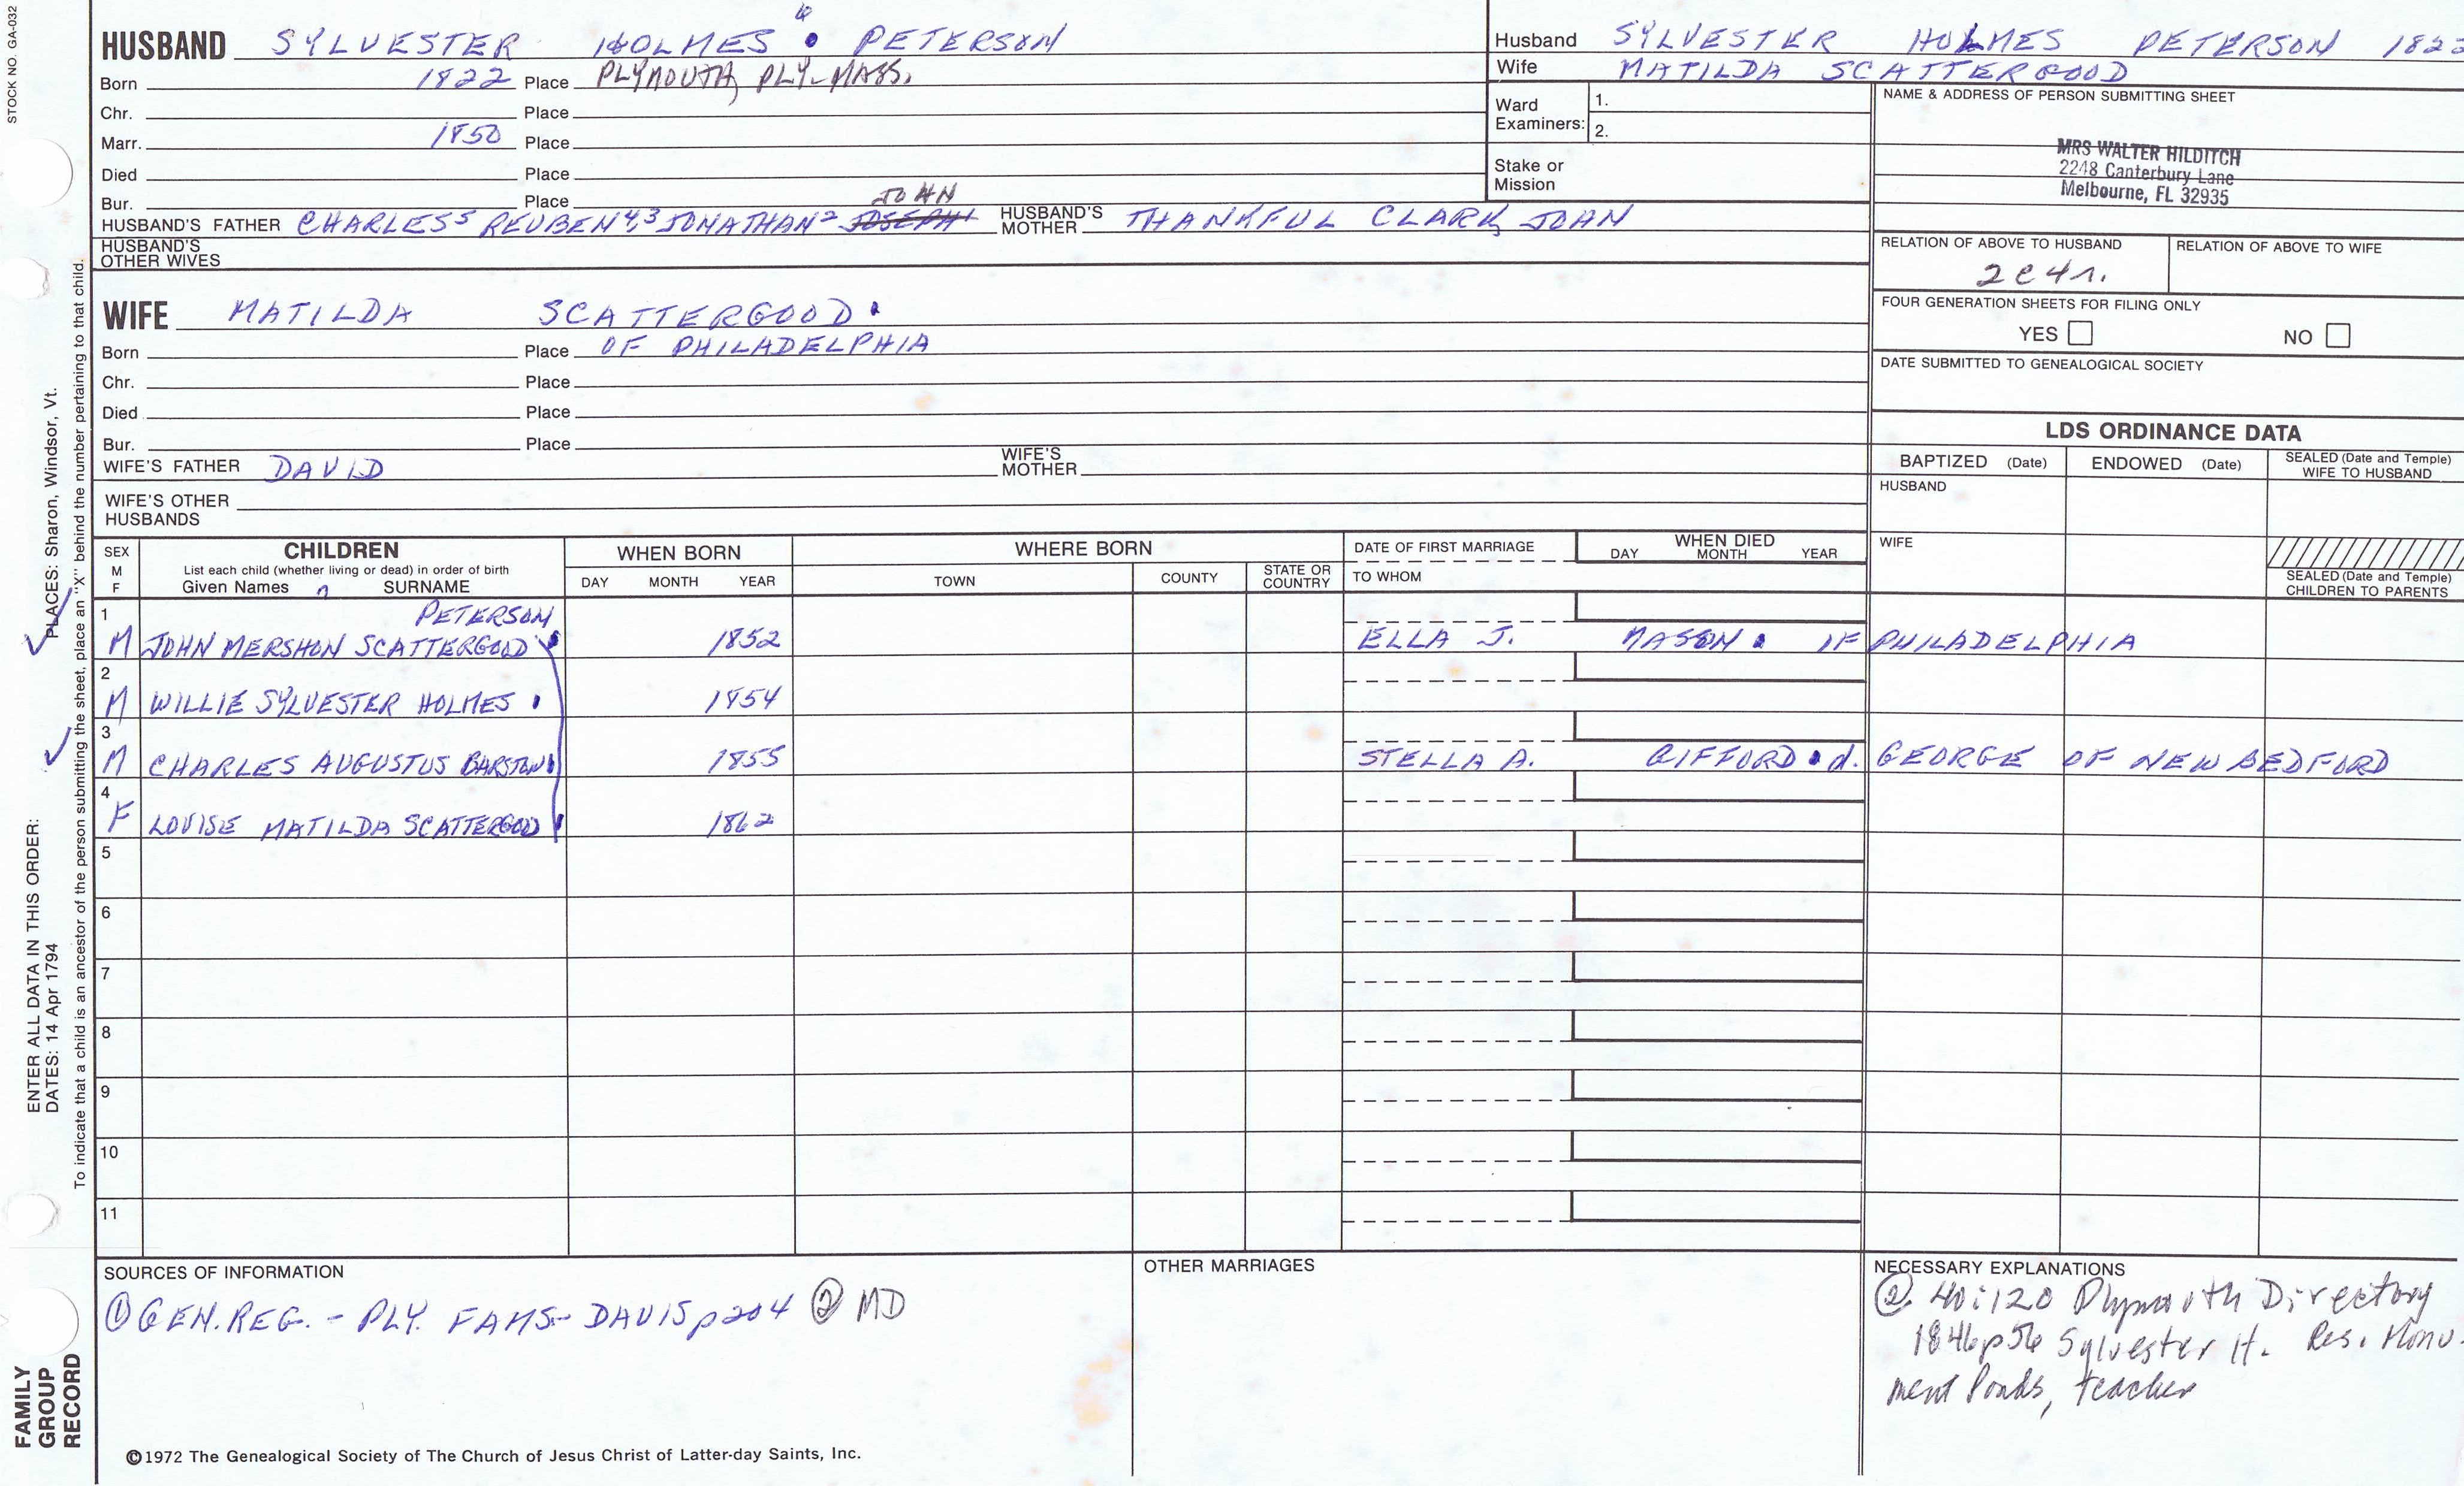 STOCK NO. GA-032
HUSBAND SYLVESTER HOLMES PETERSON
Born 1822 Place PLYMOUTH, PLY-MASS.
Chr. Place
Marr. 1850 Place
Died Place
Bur. Place
JOHN
HUSBAND'S FATHER CHARLES5 REUBEN4,3 JONATHAN2 JOSEPH1 HUSBAND'S MOTHER THANKFUL CLARK, JOHN
HUSBAND'S OTHER WIVES
WIFE MATILDA SCATTERGOOD
Born Place OF PHILADELPHIA
Chr. Place
Died Place
Bur. Place
WIFE'S FATHER DAVID WIFE'S MOTHER
WIFE'S OTHER HUSBANDS
Husband SYLVESTER HOLMES PETERSON 1822
Wife MATILDA SCATTERGOOD
Ward Examiners: 1.
2.
Stake or Mission
NAME & ADDRESS OF PERSON SUBMITTING SHEET
MRS WALTER HILDITCH
2248 Canterbury Lane
Melbourne, FL 32935
RELATION OF ABOVE TO HUSBAND RELATION OF ABOVE TO WIFE
2C4r.
FOUR GENERATION SHEETS FOR FILING ONLY
YES NO
DATE SUBMITTED TO GENEALOGICAL SOCIETY
LDS ORDINANCE DATA
BAPTIZED (Date) ENDOWED (Date) SEALED (Date and Temple) WIFE TO HUSBAND
HUSBAND
WIFE
SEALED (Date and Temple) CHILDREN TO PARENTS
SEX M F
CHILDREN
List each child (whether living or dead) in order of birth
Given Names SURNAME
WHEN BORN
DAY MONTH YEAR
WHERE BORN
TOWN COUNTY STATE OR COUNTRY
DATE OF FIRST MARRIAGE
TO WHOM
WHEN DIED
DAY MONTH YEAR
1 PETERSON
M JOHN MERSHON SCATTERGOOD 1852 ELLA J. MASON OF PHILADELPHIA
2
M WILLIE SYLVESTER HOLMES 1854
3
M CHARLES AUGUSTUS BARSTOW 1855 STELLA A. GIFFORD d. GEORGE OF NEW BEDFORD
4
F LOUISE MATILDA SCATTERGOOD 1862
5
6
7
8
9
10
11
SOURCES OF INFORMATION
① GEN. REG. - PLY. FAMS- DAVIS p204 ② MD
OTHER MARRIAGES
NECESSARY EXPLANATIONS
② 40:120 Plymouth Directory
1846 p56 Sylvester H. Res. Monu-
ment Ponds, teacher
©1972 The Genealogical Society of The Church of Jesus Christ of Latter-day Saints, Inc.
FAMILY
GROUP
RECORD
ENTER ALL DATA IN THIS ORDER:
DATES: 14 Apr 1794
PLACES: Sharon, Windsor, Vt.
To indicate that a child is an ancestor of the person submitting the sheet, place an "X" behind the number pertaining to that child.